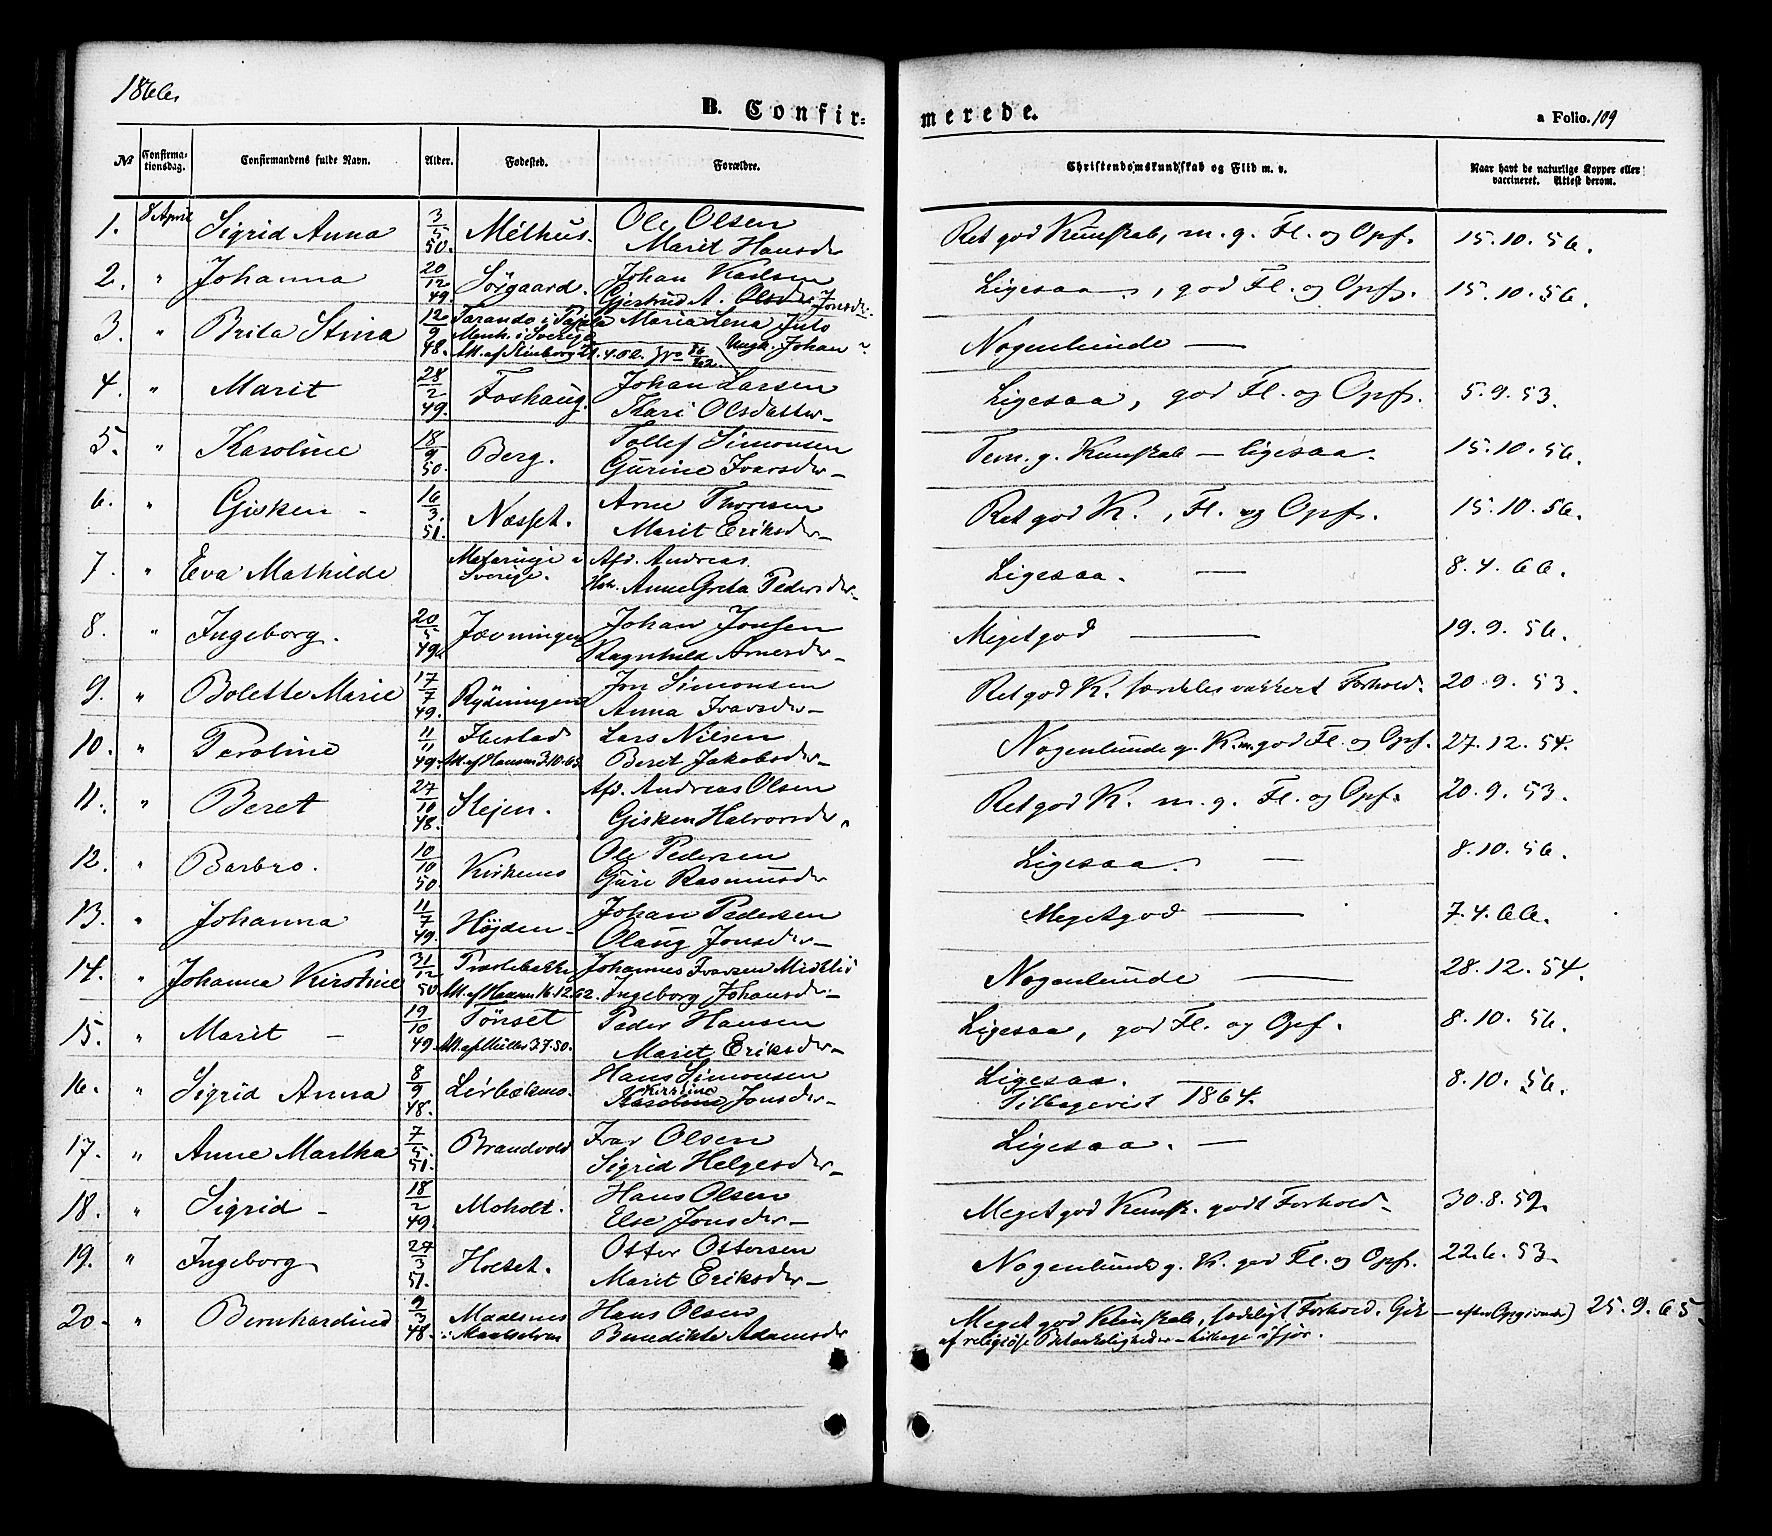 1866.
B. Confir=
merede.
a Folio. 109
№ Confirma-tionsdag. Confirmandens fulde Navn. Alder. Fødested. Forældre. Christendomskundskab og Flid m. v. Naar havt de naturlige Kopper eller vaccineret. Attest derom.
1. 8 April Sigrid Anna 3/5 50. Melhus. Ole Olsen Ret god Kunskab, m. g. Fl. og Opf. 15.10.56.
Marit Hansdr
2. " Johanna 20/12 49. Sörgaard. Johan Karlsen Ligesaa, god Fl. og Opf. 15.10.56.
Gjertrud A. Jonsdr.
3. " Brita Stina 12/9 48. Tarando i Pajala Maria Lena Nogenlunde —
i Sverige Ungk. Johan
4. " Marit 28/2 49. Foshaug. Johan Larsen Ligesaa, god Fl. og Opf. 5.9.53.
Kari Olsdatter
5. " Karoline 18/9 50. Berg. Tollef Simonsen Tem. g. Kunskab — ligesaa. 15.10.56.
Gurine Ivarsdr
6. " Gisken - 16/3 51. Næsset. Arne Thoresen Ret god K., Fl. og Opf. 15.10.56.
Marit Eriksdr
7. " Eva Mathilde Sverige. Afd. Andreas Ligesaa. — 8.4.66.
Anne Greta Pedersdr
8. " Ingeborg. 20/5 49. Jævningen Johan Jonsen Meget god — 19.9.56.
Ragnhild Arnesdr
9. " Bolette Marie 17/7 49. Rydningen Jon Simonsen Ret god K. særdeles vakkert Forhold. 20.9.53.
Anna Ivarsdr
10. " Peroline 11/11 49. Ibestad Lars Nilsen Nogenlunde g. K. m. god Fl. og Opf. 27.12.54.
Att. af Hansen 3.10.65. Beret Jakobsdr
11. " Beret 27/10 48. Stejen. Afd. Andreas Olsen Ret god K. m. g. Fl. og Opf. 20.9.53.
Gisken Halvorsdr
12. " Barbro. 10/10 50. Kirkemo Ole Pedersen Ligesaa. — 8.10.56.
Guri Rasmusdr
13. " Johanna 11/7 49. Höjden Johan Pedersen Meget god — 7.4.66.
Olaug Jonsdr
14. " Johanna Kirstine 31/12 50. Præstebakke Johannes Ivarsen Nogenlunde — 28.12.54.
16.12.62. Ingeborg Johansdr
15. " Marit - 19/10 49 Tönset Peder Hansen Ligesaa, god Fl. og Opf. 8.10.56.
Att. af Müller 3.7.50. Marit Eriksdr
16. " Sigrid Anna 8/9 48. Hans Simonsen Ligesaa. — 8.10.56.
Kirstine Karoline Jonsdr Tilbagevist 1864.
17. " Anne Martha 7/5 51. Brandvold Ivar Olsen Ligesaa. —
Sigrid Helgesdr
18. " Sigrid - 18/2 49. Moholt. Hans Olsen Meget god Kunsk. godt Forhold. 30.8.59.
Else Jonsdr
19. " Ingeborg 27/3 51. Holtet. Otter Ottersen Nogenlunde g. K. god Fl. og Opf. 22.6.53.
Marit Eriksdr
20. " Bernhardine 9/3 48. Maalsnes Hans Olsen Meget god Kunskab, sædeligt Forhold. Gik — efter Opgivende) 25.9.65.
Maalselven Benedikte Adamsdr af religiöse Betænkeligheder tilbage ifjor.